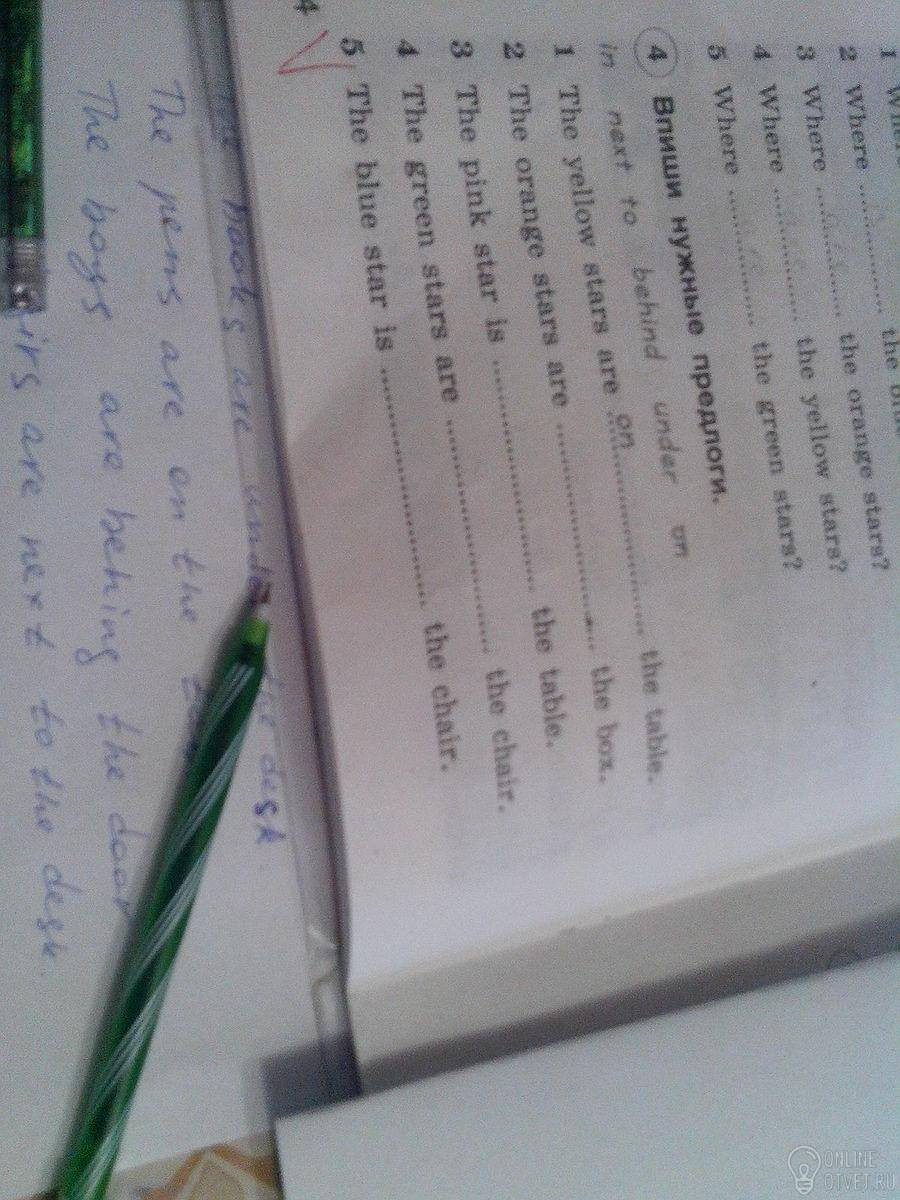 1 Where
2 Where ............ the orange stars?
3 Where ............ the yellow stars?
4 Where ............ the green stars?
5 Where ............ the green stars?
4 Впиши нужные предлоги.
in next to behind under on
1 The yellow stars are ..on.............. the table.
2 The orange stars are .................. the box.
3 The pink star is .................. the table.
4 The green stars are .................. the chair.
5 The blue star is .................. the chair.
4
The books are under the desk
The pens are on the
The boys are behing the door
are next to the desk.
ONLINE
OTVET.RU